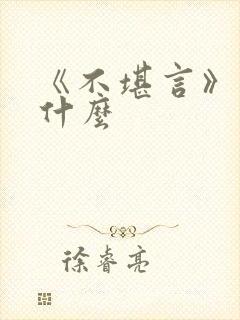 《不堪言》
什麼
徐睿亮